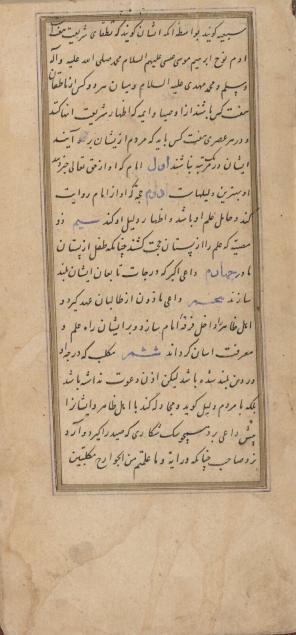 سبعیه کویند بواسطه آنکه ایشان کویند که نطقای شریعت هفت‌اند
آدم نوح ابرهیم موسی عیسی علیهم السلام محمد صلی الله علیه وآله
وسلم و محمد مهدی علیه السلام ومیان هر دو کس از ناطقان
هفت کس باشند از اوصیا و ایمه که اظهار شریعت ایشان کنند
و در هر عصری هفت کس باید که مردم از ایشان براه آیند
ایشان در مرتبه باشند اول امام که او از حق تعالی خبر دهد
و او بهترین دلیلهاست دوم حجت که او از امام روایت
کند و حامل علم او باشد و اظهار دلیل او کند سیم ذو
مصه که علم را از پستان حجت کشد چنانکه طفل از پستان
مادر چهارم داعی اکبر که درجات تابعان ایشان بلند
سازند پنجم داعی ماذون از طالبان عهد کیرد و
اهل ظاهر را داخل فرقه امام سازد و بر ایشان راه علم و
معرفت آسان کرداند ششم مکلب که درجه او
در دین بلند شده باشد لیکن اذن دعوت نداشته باشد
بلکه با مردم دلیل کوید و مجادله کند با اهل ظاهر و ایشانرا
پیش داعی برد همچو سک شکاری که صید را کیرد و آرد
نزد صاحب چنانکه در آیه و ما علمتم من الجوارح مکلبین